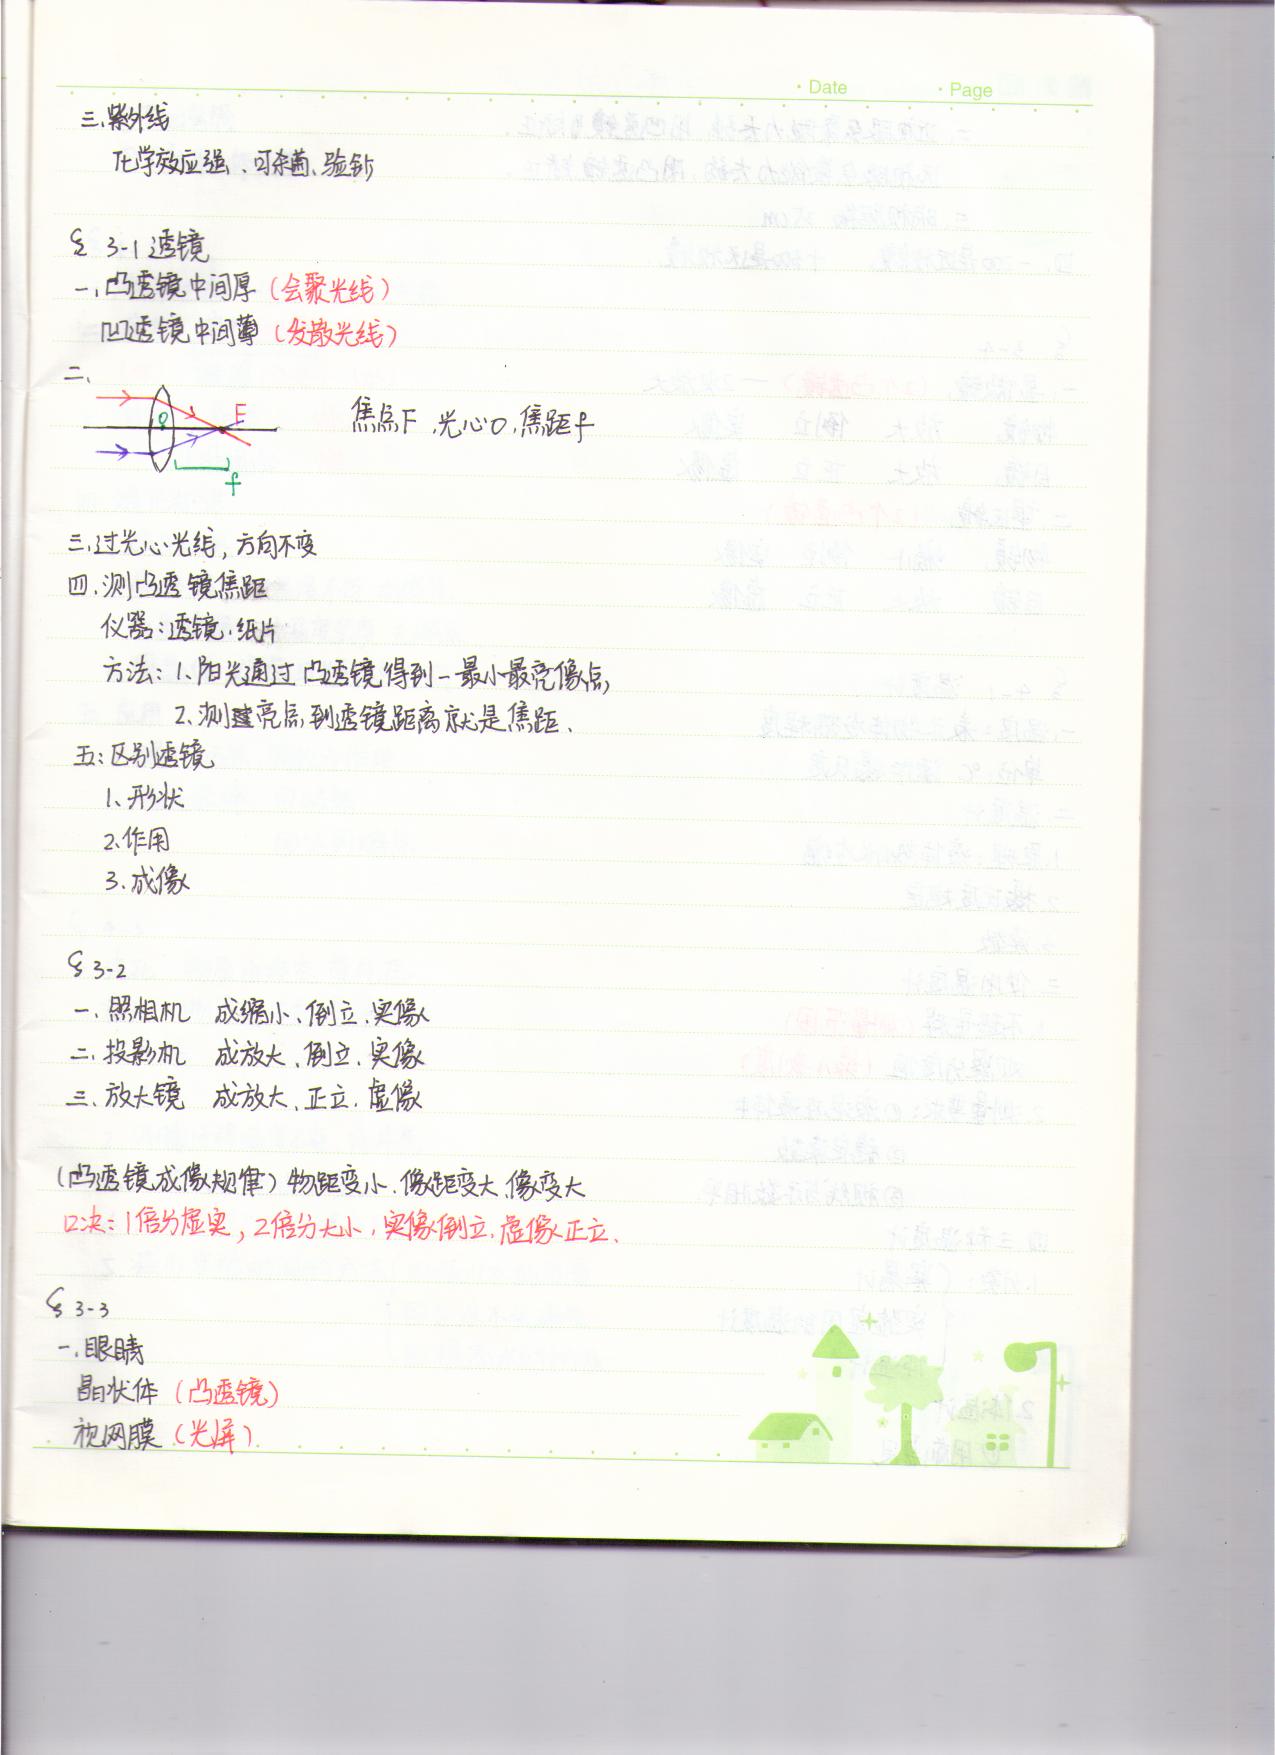 Date Page
三.紫外线
化学效应强、可杀菌、验钞
§ 3-1透镜
一.凸透镜中间厚(会聚光线)
凹透镜中间薄(发散光线)
二、
O F f
焦点F、光心O,焦距f
三.过光心光线,方向不变
四.测凸透镜焦距
仪器:透镜.纸片
方法:1.阳光通过凸透镜得到一最小最亮像点,
2.测这亮点到透镜距离就是焦距.
五:区别透镜
1、形状
2.作用
3.成像
§ 3-2
一.照相机 成缩小、倒立、实像
二.投影机 成放大、倒立.实像
三.放大镜 成放大、正立.虚像
(凸透镜成像规律)物距变小.像距变大.像变大
口决:1倍分虚实,2倍分大小,实像倒立.虚像正立.
§ 3-3
一.眼睛
晶状体(凸透镜)
视网膜(光屏)